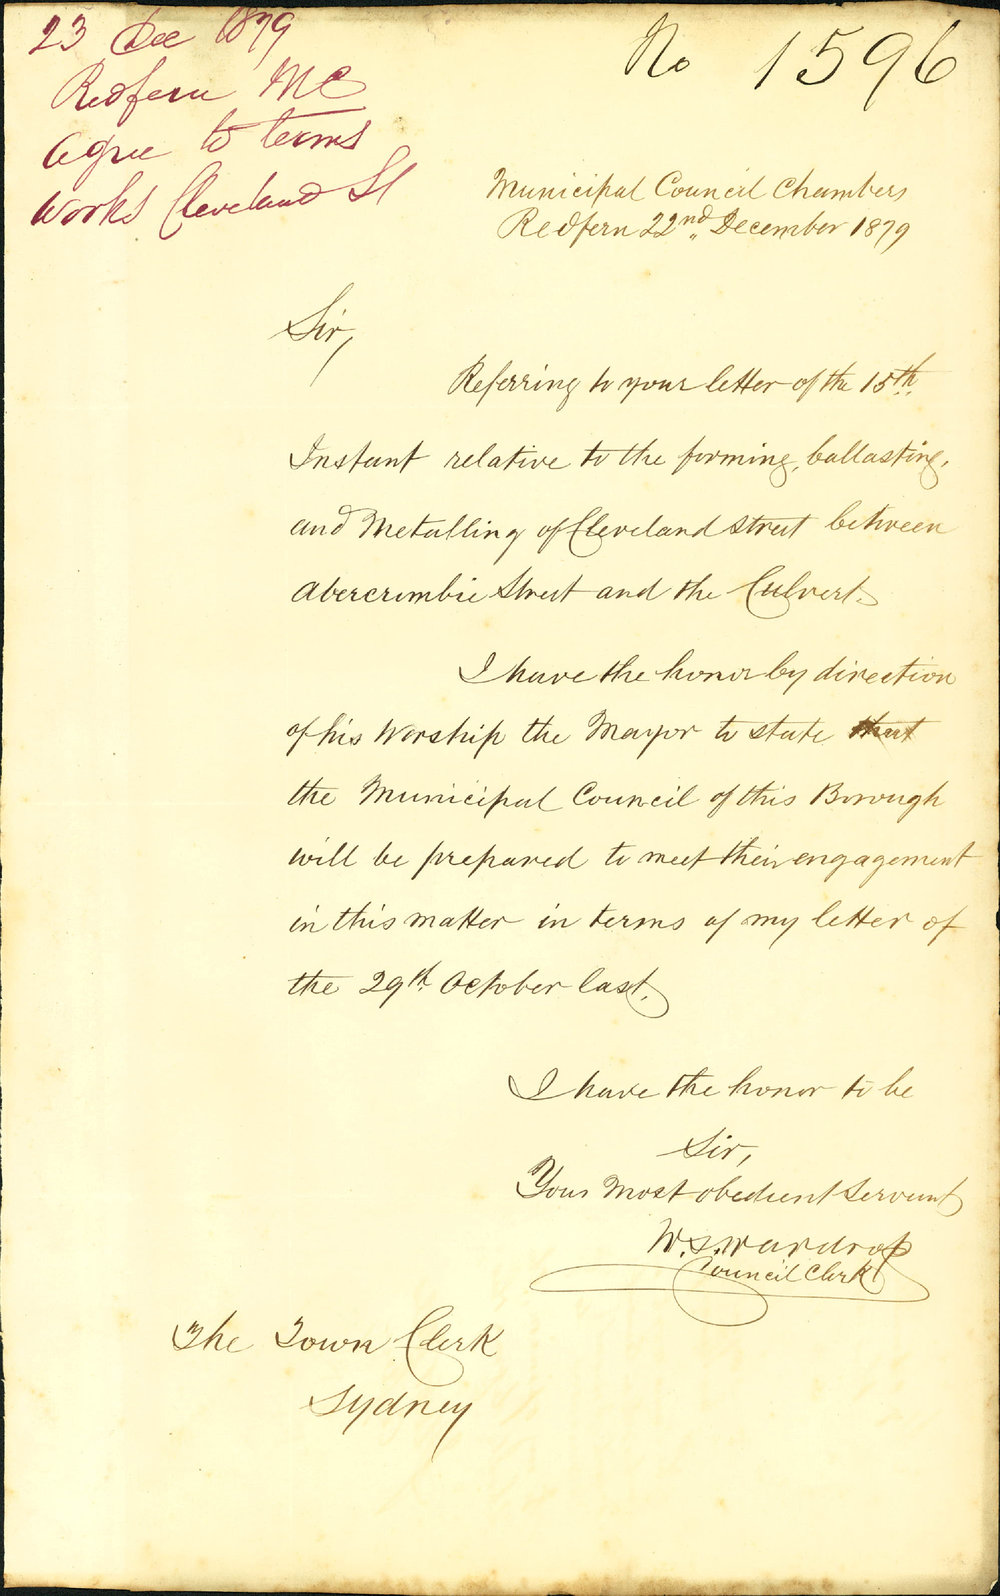 23 Dec 1879
Redfern MC
agree to terms
works Cleveland St
No 1596
Municipal Council Chambers
Redfern 22nd December 1879
Sir,
Referring to your letter of the 15th
Instant relative to the forming, ballasting,
and Metalling of Cleveland Street between
Abercrombie Street and the Culvert.
I have the honor by direction
of his Worship the Mayor to state that
the Municipal Council of this Borough
will be prepared to meet their engagement
in this matter in terms of my letter of
the 29th October last.
I have the honor to be
Sir,
Your most obedient servant
W.S. Wardrop
Council Clerk
The Town Clerk
Sydney